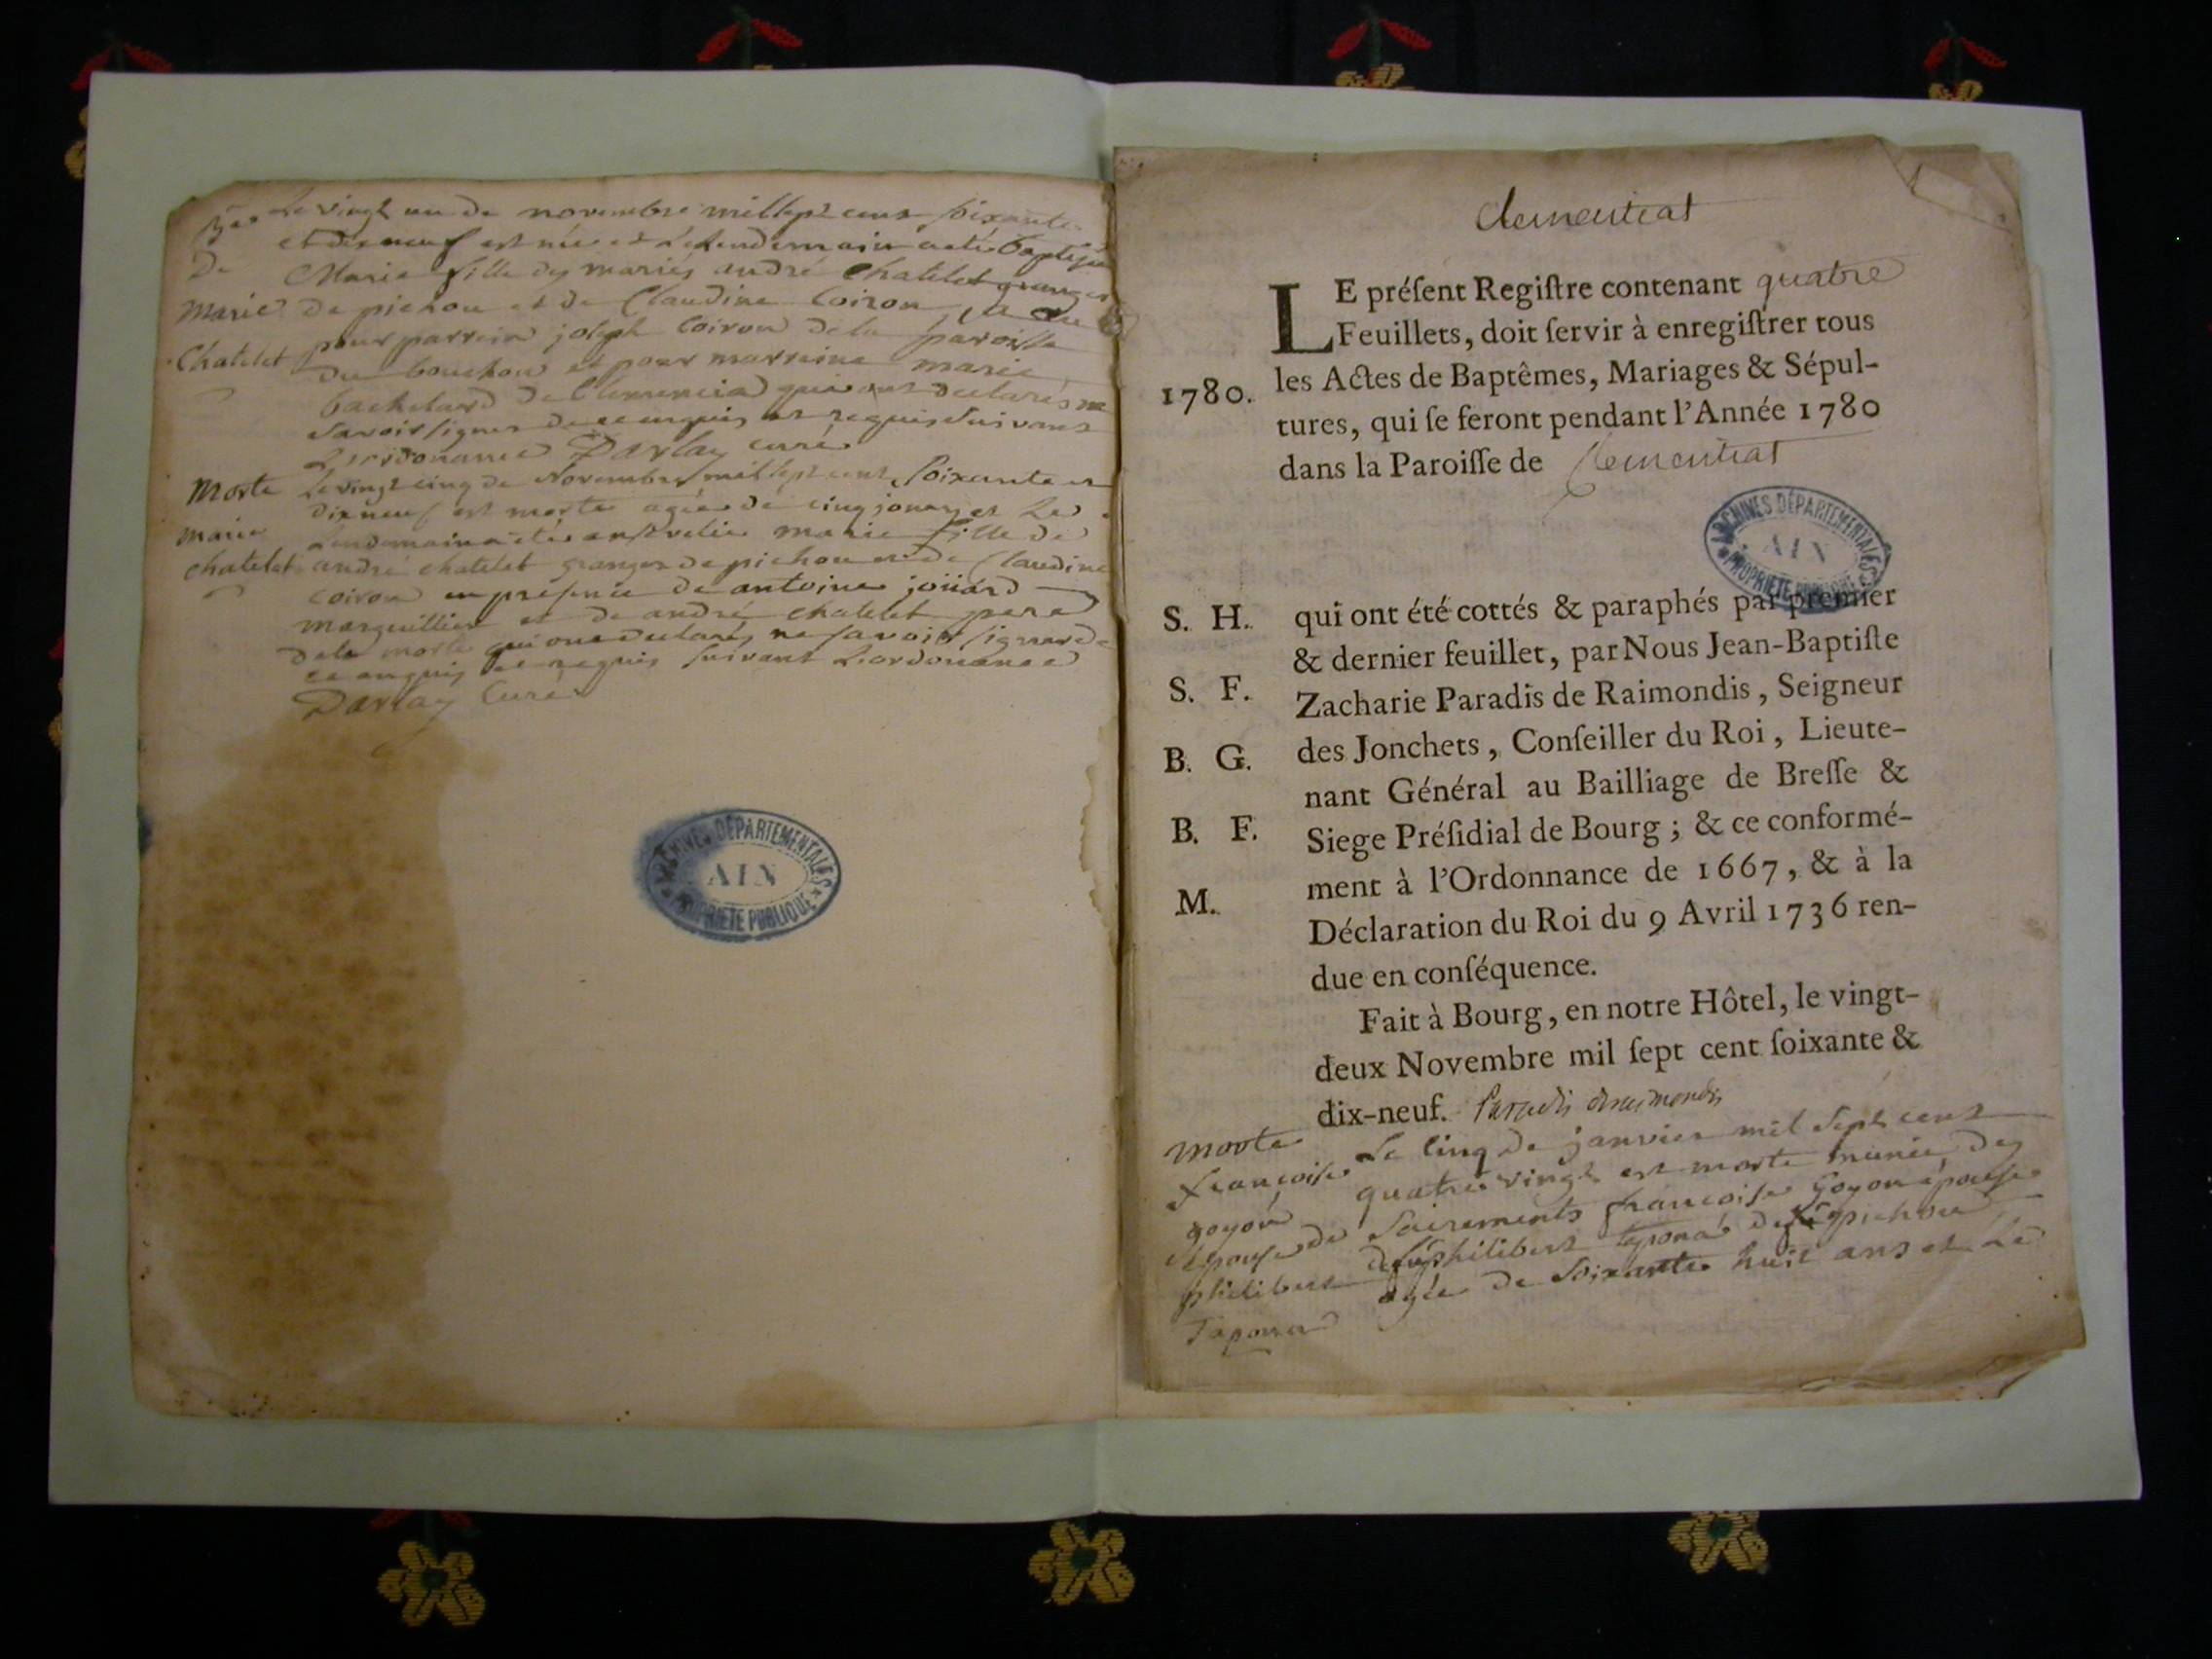 Bme Le vingt un de novembre mil sept cent soixante
et dix neuf est née et le lendemain a été baptisée
De Marie fille des mariés andré Chatelet granger
Marie de pichou et de Claudine Coiron, a eu
pour parrein joseph Coiron de la paroisse
Chatelet du bouchou et pour marreine marie
bachelard de Clemencia qui ont declarés ne
savoir signer de ce enquis et requis suivant
L'ordonance Darlay curé
Morte Le vingt cinq de Novembre mil sept cent soixante et
dix neuf est morte agée de cinq jours et Le
marie Lendemain a été ensevelie marie fille de
chatelet andré chatelet granger de pichou et de Claudine
coiron en presence de antoine joüard
marguillier et de andré chatelet pere
de la morte qui ont declarés ne savoir signer de
ce enquis et requis suivant L'ordonance
Darlay Curé
ARCHIVES DÉPARTEMENTALES
AIN
PROPRIÉTÉ PUBLIQUE
1
Clementiat
LE préſent Regiſtre contenant quatre
Feuillets, doit ſervir à enregiſtrer tous
1780. les Actes de Baptêmes, Mariages & Sépul-
tures, qui ſe feront pendant l'Année 1780
dans la Paroiſſe de Clementiat
ARCHIVES DÉPARTEMENTALES
AIN
PROPRIÉTÉ PUBLIQUE
S. H. qui ont été cottés & paraphés par premier
& dernier feuillet, par Nous Jean-Baptiſte
S. F. Zacharie Paradis de Raimondis, Seigneur
B. G. des Jonchets, Conſeiller du Roi, Lieute-
nant Général au Bailliage de Breſſe &
B. F. Siege Préſidial de Bourg; & ce conformé-
M. ment à l'Ordonnance de 1667, & à la
Déclaration du Roi du 9 Avril 1736 ren-
due en conſéquence.
Fait à Bourg, en notre Hôtel, le vingt-
deux Novembre mil ſept cent ſoixante &
dix-neuf. Paradis deraimondis
morte Le cinq de janvier mil sept cent
francoise quatre vingt est morte munie des
goyon Sacrements francoise goyon épouse
Epouse de philibert tapond de pichou
philibert agée de soixante huit ans et Le
Taponad